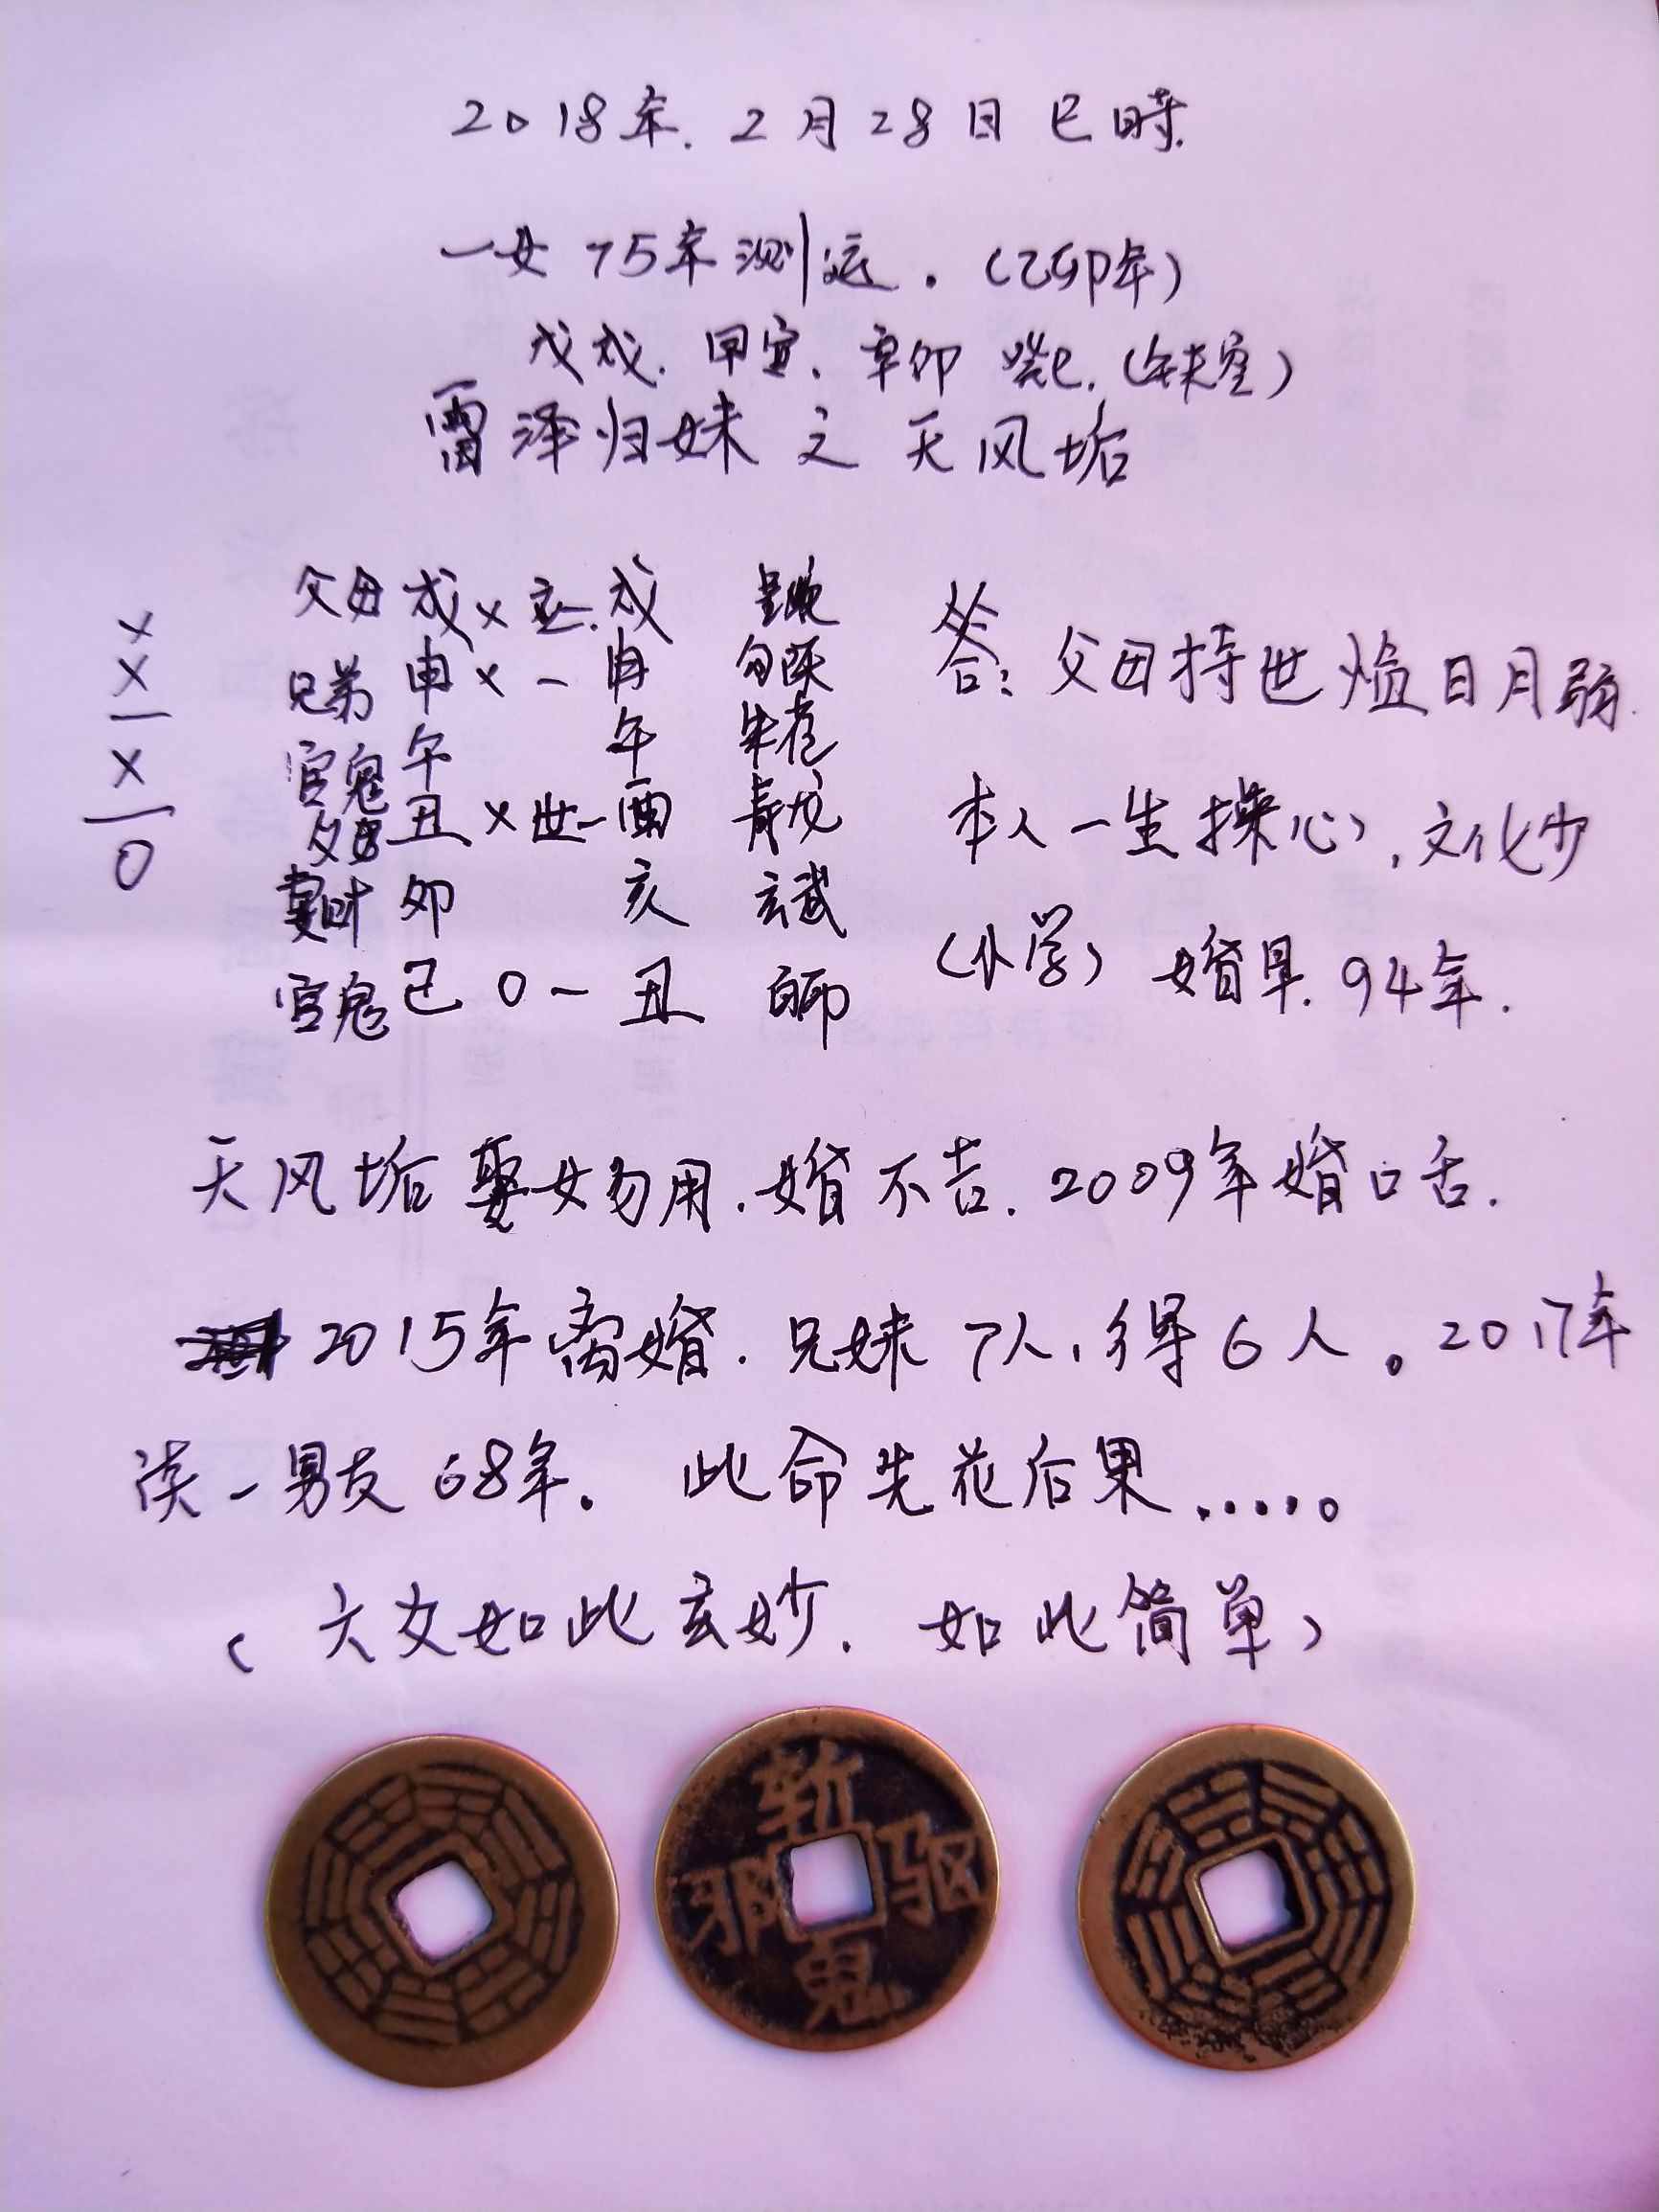 2018年.2月28日巳時.
一女75年测运.(乙卯年)
戊戌.甲寅.辛卯 癸巳.(午未空)
雷泽归妹之天风垢
父母 戌 × 应. 戌
兄弟 申 × 一 申 勾陈
官鬼 午 午 朱雀
父母 丑 × 世一 酉 青龙
妻财 卯 亥 玄武
官鬼 巳 0 一 丑 白虎
×
×
一
×
一
0
答:父母持世临日月弱.
本人一生操心,文化少
(小学) 婚早.94年.
天风垢娶女勿用.婚不吉.2009年婚口舌.
2015年离婚.兄妹7人,得6人。2017年
谈一男友68年。此命先花后果.....。
(六爻如此玄妙.如此简单)
斩 驱 鬼 邪